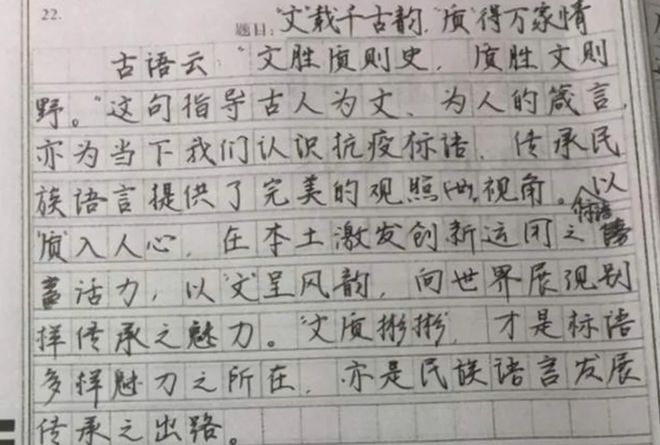 22.
题目："文"载千古韵，"质"得万家情
古语云："文胜质则史，质胜文则
野。"这句指导古人为文、为人的箴言，
亦为当下我们认识抗疫标语、传承民
族语言提供了完美的观照视角。以
"质"入人心，在本土激发创新运用之标语
活力，以"文"呈风韵，向世界展现别
样传承之魅力。"文质彬彬"，才是标语
多样魅力之所在，亦是民族语言发展
传承之出路。